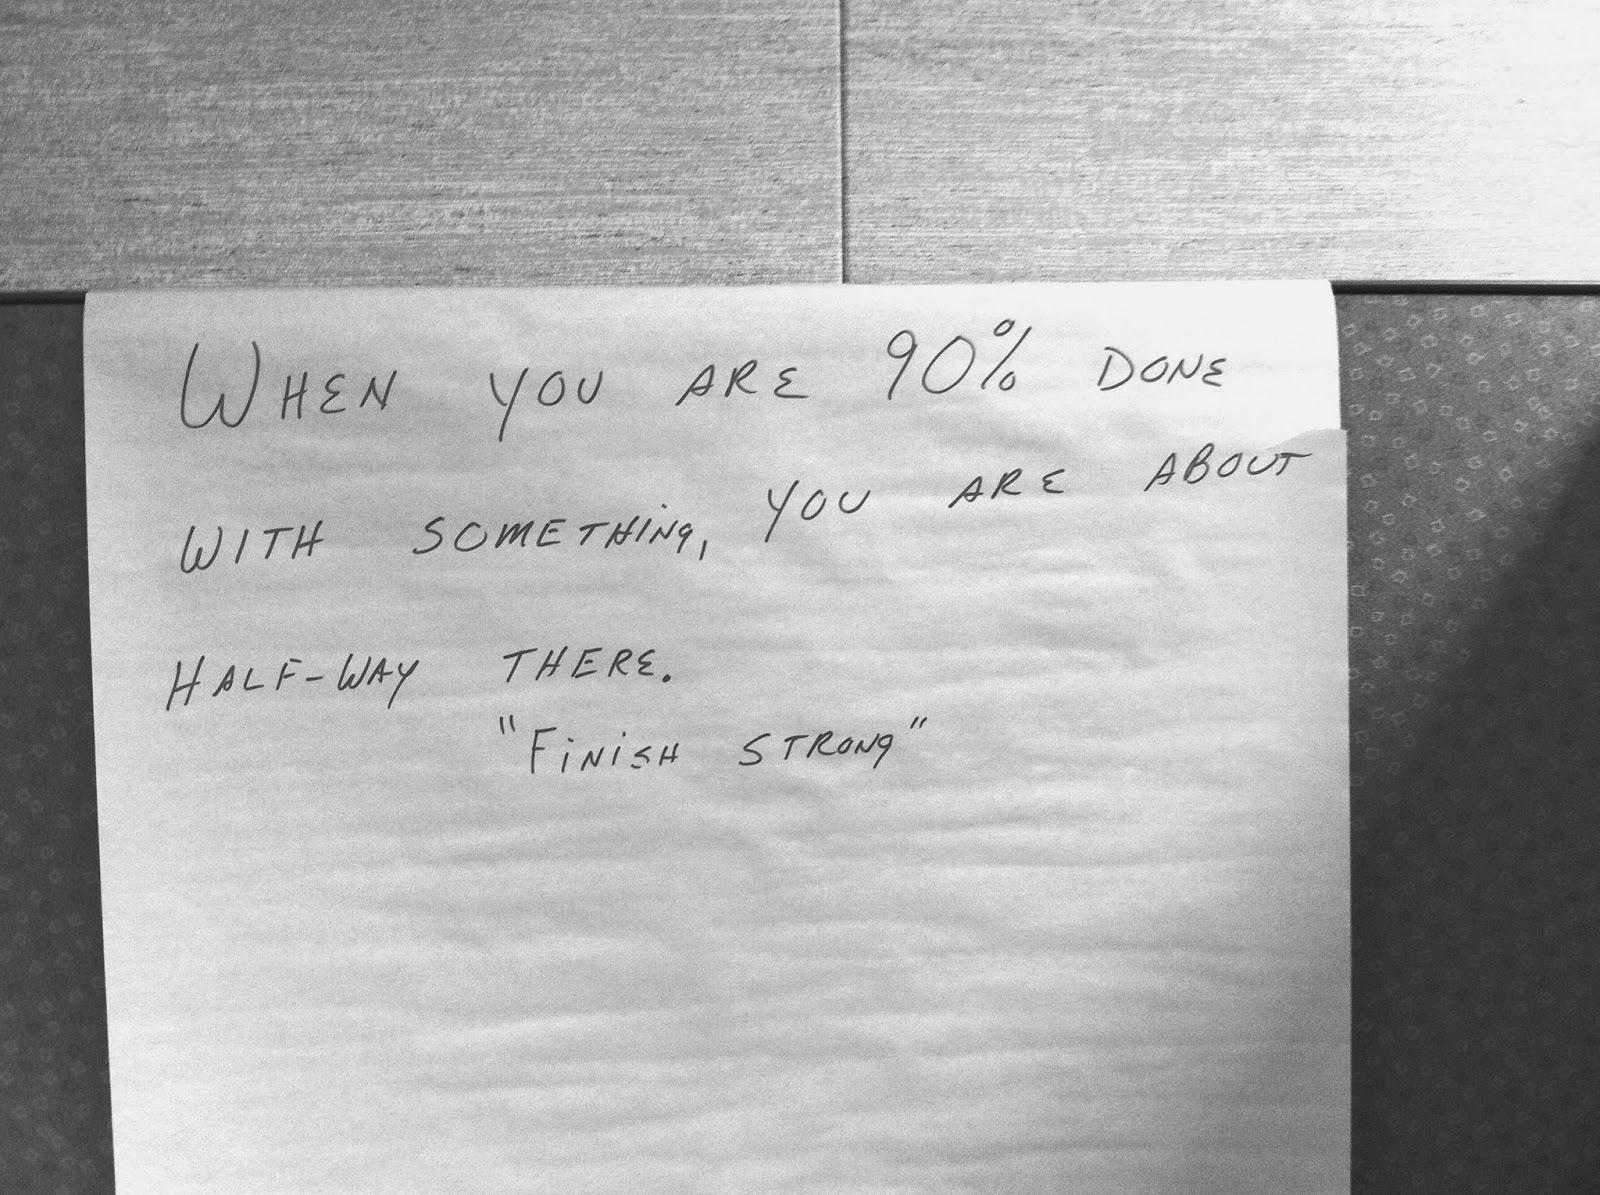 When you are 90% done
with something, you are about
Half-way there.
"Finish strong"